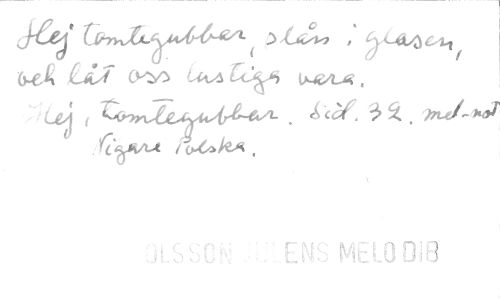 Hej tomtegubbar, slån i glasen,
och låt oss lustiga vara.
Hej, tomtegubbar. Sid. 32. mel-not
Nigare Polska.
OLSSON JULENS MELODIB